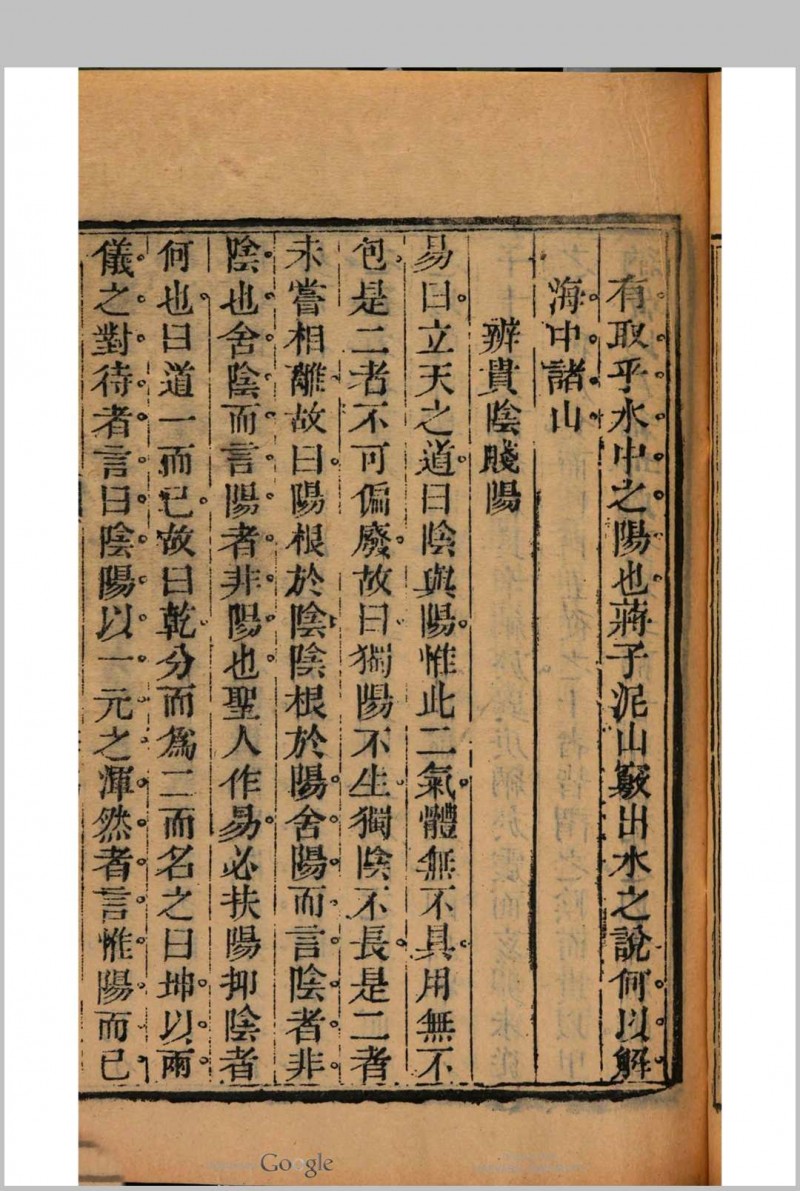 有取乎水中之陽也蔣子泥山竅出水之說何以解
海中諸山
辨貴陰賤陽
易曰立天之道曰陰與陽惟此二氣體無不具用無不
包是二者不可偏廢故曰獨陽不生獨陰不長是二者
未嘗相離故曰陽根於陰陰根於陽舍陽而言陰者非
陰也舍陰而言陽者非陽也聖人作易必扶陽抑陰者
何也曰道一而已故曰乾分而為二而名之曰坤以兩
儀之對待者言曰陰陽以一元之渾然者言惟陽而已
Google